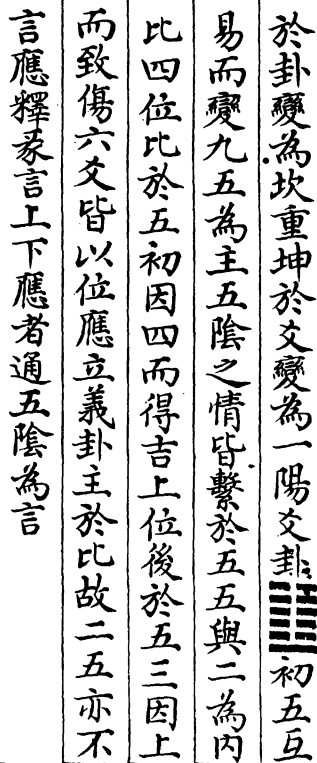 於卦變為坎重坤於爻變為一陽爻卦䷇初五互
易而變九五為主五陰之情皆繫於五五與二為內
比四位比於五初因四而得吉上位後於五三因上
而致傷六爻皆以位應立義卦主於比故二五亦不
言應釋彖言上下應者通五陰為言